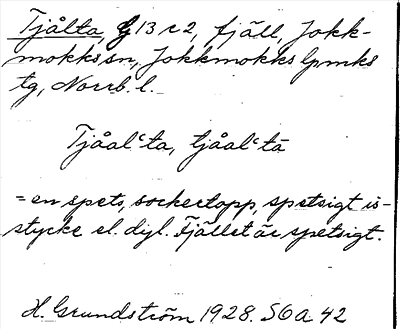 Tjålta, G 13 r 2, fjäll, Jokk-
mokks sn, Jokkmokks lpmks
tg, Norrb. l.
Tjåalʿta, tjåalʿtā
= en spets, sockertopp, spetsigt is-
stycke el. dyl. Fjället är spetsigt.
H. Grundström 1928. S6a 42